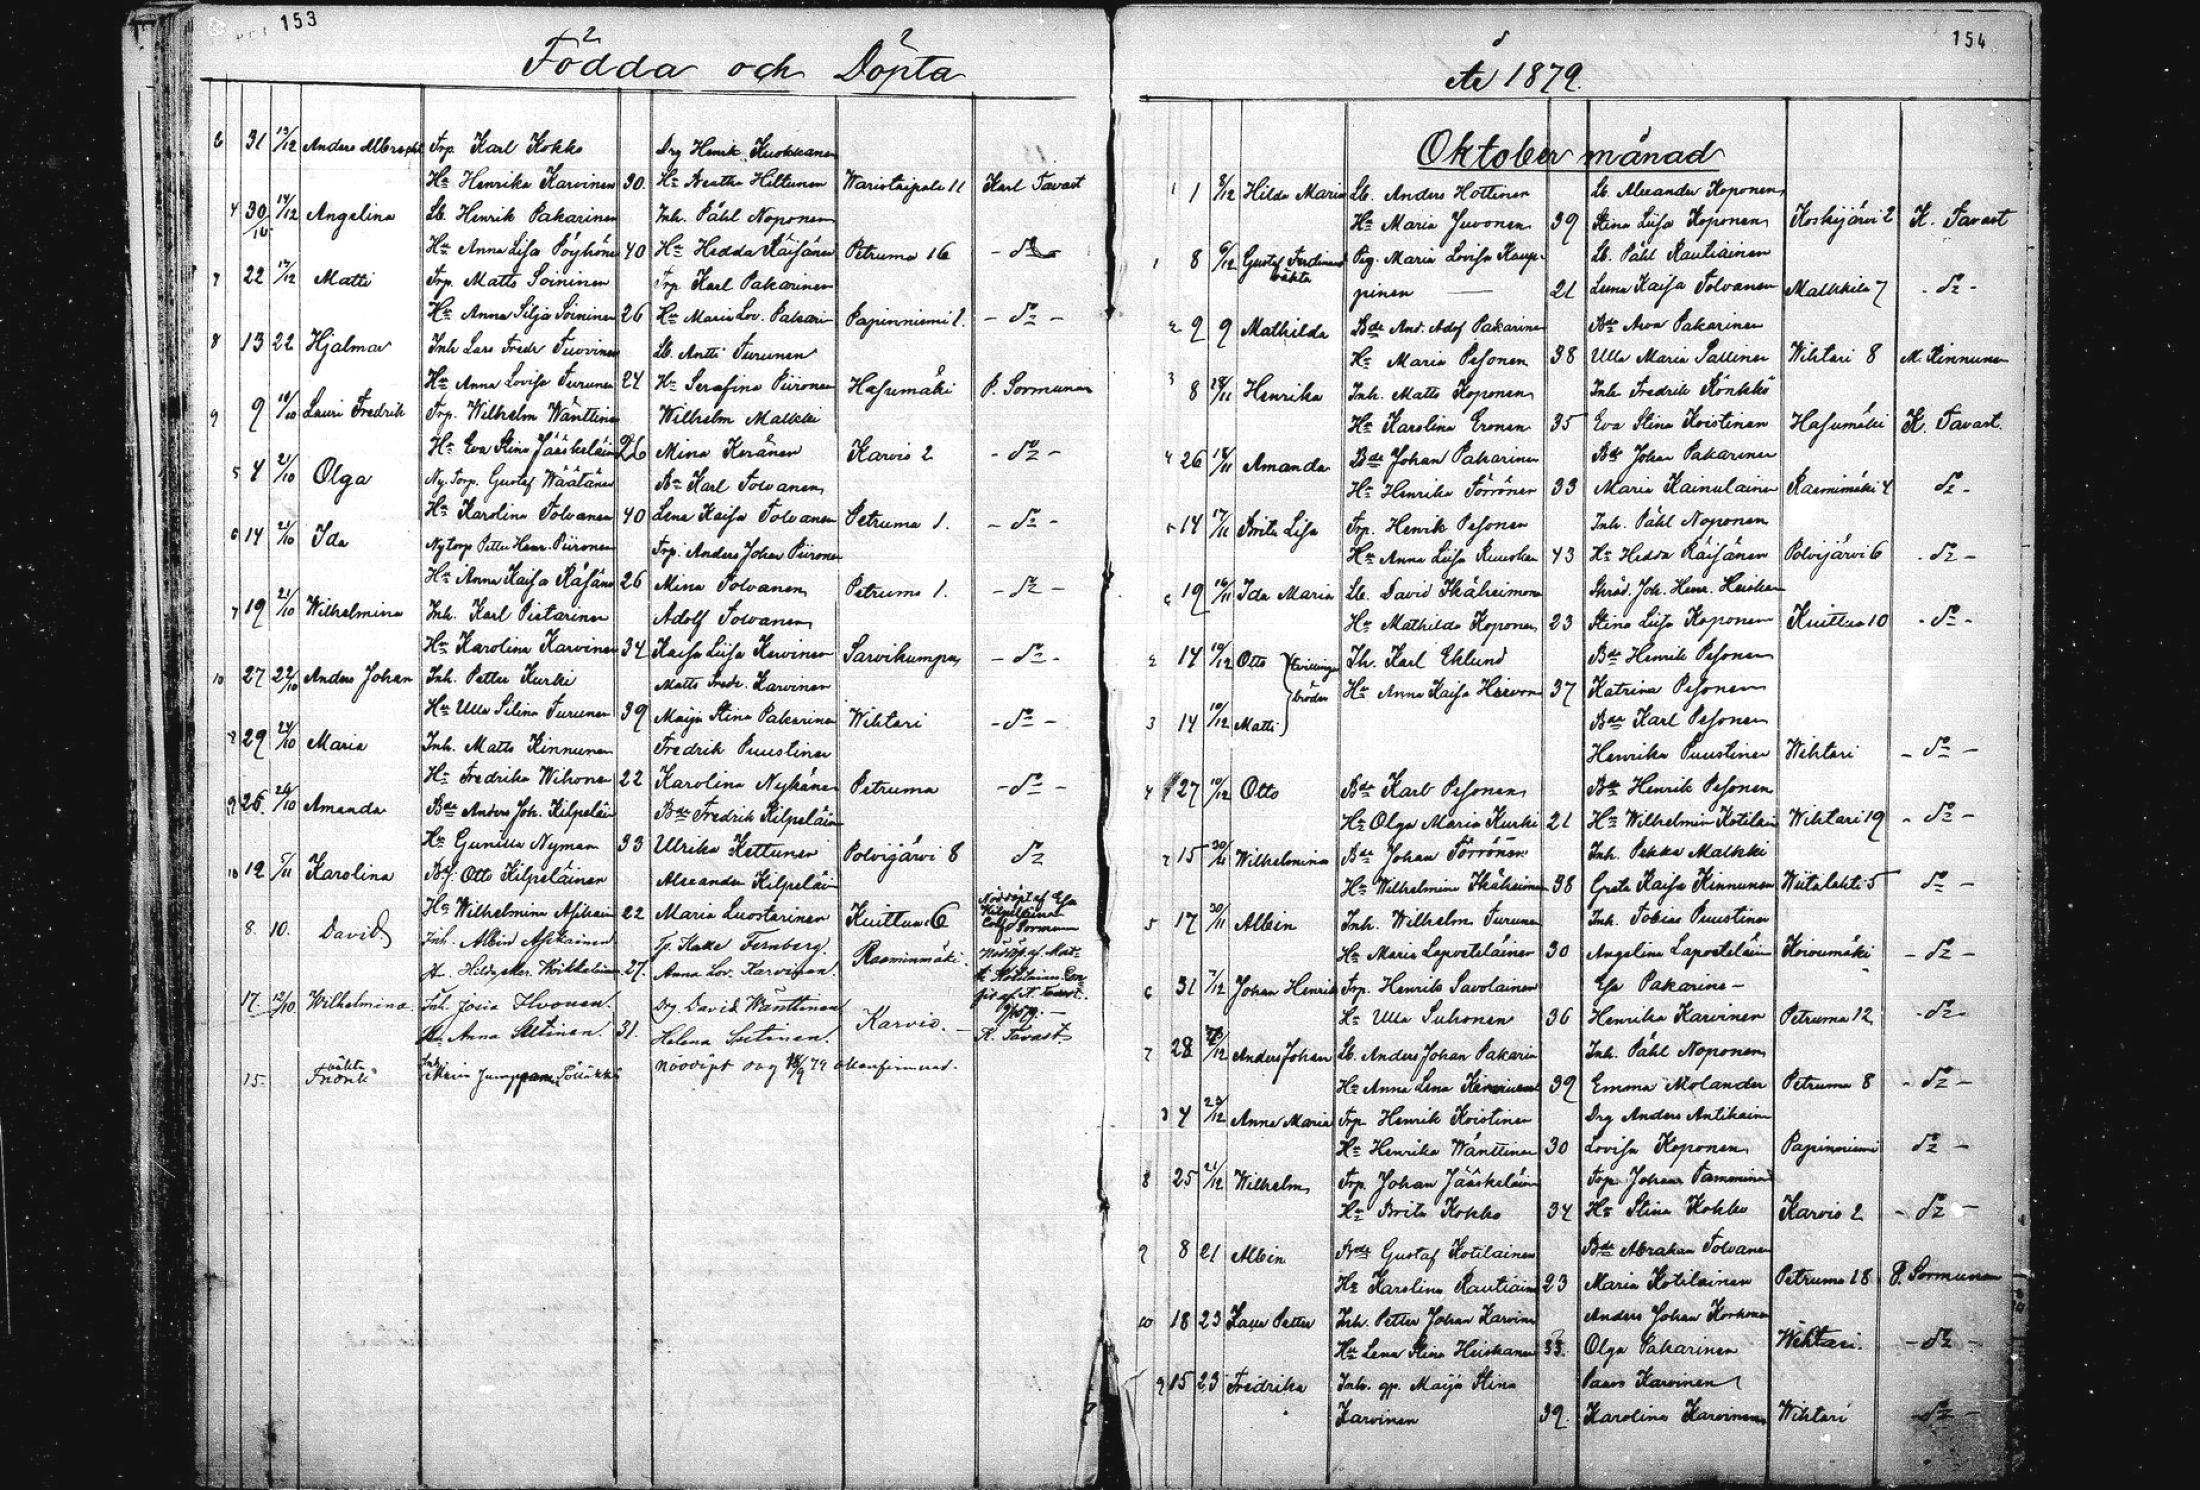 153
Födda och Döpta
6 31 13/12 Anders Albrecht Trp. Karl Kokko Drg Henrik Kuokkanen
Hu Henrika Karvinen 30. Hu Beatha Hiltunen Waristaipale 11 Karl Tavast
4 30/10 14/12 Angelina Lb. Henrik Pakarinen Inh. Påhl Noponen
Hu Anna Lisa Pöyhönen 40 Hu Hedda Räisänen Petruma 16 - do -
7 22 17/12 Matti Trp. Matts Soininen Trp. Karl Pakarinen
Hu Anna Silja Soininen 26 Hu Maria Lov. Pakari Papinniemi 1. - do -
8 13 22 Hjalmar Inh Lars Fredr Tuovinen Lb. Antti Turunen
Hu Anna Lovisa Turunen 24 Hu Serafina Piironen Hasumäki P. Sormunen
9 9 10/10 Lauri Fredrik Trp. Wilhelm Wänttinen Wilhelm Malkki
Hu Eva Stina Jääskeläinen 26 Mina Keränen Karvio 2 - do -
5 4 21/10 Olga Ny. Torp. Gustaf Wäätänen Bn Karl Tolvanen
Hu Karolina Tolvanen 40 Lena Kaisa Tolvanen Petruma 1. - do -
6 14 21/10 Ida Nytorp Petter Henr. Piironen Trp. Anders Johan Piironen
Hu Anna Kaisa Räsänen 26 Mina Tolvanen Petruma 1. - do -
7 19 21/10 Wilhelmina Inh. Karl Pietarinen Adolf Tolvanen
Hu Karolina Karvinen 34 Kaisa Lisa Karvinen Sarvikumpu - do -
10 27 22/10 Anders Johan Inh. Petter Kurki Matts Fredr. Karvinen
Hu Ulla Silina Turunen 39 Maija Stina Pakarinen Wihtari - do -
8 29 24/10 Maria Inh. Matts Kinnunen Fredrik Puustinen
Hu Fredrika Wihonen 22 Karolina Nykänen Petruma - do -
9 26 26/10 Amanda Bde Anders Joh. Kilpeläi Bde Fredrik Kilpeläin
Hu Gunilla Nyman 33 Ulrika Kettunen Polvijärvi 8 do
10 12 5/11 Karolina Otto Kilpeläinen Alexander Kilpeläi
Hu Wilhelmina Asikain 22 Maria Luostarinen Kuittua 6 Nöddöpt af Esa Kilpeläinen Conf Sormunen
8. 10. David Inh. Albin Asikainen Tp. Kalle Fernberg. Raaminmäki.
Hu. Hilda 27. Anna Lov. Karvinen.
17. 12/10 Wilhelmina. Inh. Josia Ihvonen. Drg David Wänttinen
Hu Anna Sutinen. 31. Helena Sutinen. Karvio. - K. Tavast.
15. oäkta Fredrik Maria nöddöpt konfirmerad.
154
År 1879.
Oktober månad
1 1 8/12 Hilda Maria Lb. Anders Hottinen Lb. Alexander Koponen
Hu Maria Juvonen 39 Stina Lisa Koponen Koskijärvi 2 K. Tavast
1 8 6/12 Gustaf Ferdinand oäkta Pig. Maria Lovisa Kaup- Lb. Påhl Rautiainen
pinen 21 Leena Kaisa Tolvanen Malkkila 7 - do -
2 9 9 Mathilda Bde And. Adof Pakarinen Bde Aron Pakarinen
Hu Maria Pesonen 38 Ulla Maria Pallinen Wihtari 8 M. Kinnunen
3 8 28/11 Henrika Inh. Matts Koponen Inh Fredrik Rönkkö
Hu Karolina Eronen 35 Eva Stina Koistinen Hasumäki K. Tavast.
4 26 18/11 Amanda Bde Johan Pakarinen Bde Johan Pakarinen
Hu Henrika Törrönen 33 Maria Kainulainen Raaminmäki 4 do -
5 14 17/11 Brita Lisa Trp. Henrik Pesonen Inh. Påhl Noponen
Hu Anna Luisa 43 Hu Hedda Räisänen Polvijärvi 6 - do -
6 19 16/11 Ida Maria Lb. David Ikäheimonen Skräd. Joh. Henr. Heiskan
Hu Mathilda Koponen 23 Stina Lisa Koponen Kuittua 10 - do -
2 14 10/12 Otto tvillinge bröder Th. Karl Eklund Bde Henrik Pesonen
Hu Anna Kaisa Hirvon 37 Katrina Pesonen
3 14 10/12 Matti Bde Karl Pesonen
Henrika Puustinen Wihtari - do -
4 27 10/12 Otto Bde Karl Pesonen Bde Henrik Pesonen
Hu Olga Maria Kurki 21 Hu Wilhelmin Kotilain Wihtari 19 - do -
7 15 30/11 Wilhelmina Bde Johan Törrönen Inh. Pekka Malkki
Hu Wilhelmina Ikäheimon 38 Greta Kaisa Kinnunen Wiitalahti 5 do -
5 17 30/11 Albin Inh. Wilhelm Turunen Inh. Tobias Puustinen
Hu Maria Lapveteläinen 30 Angelina Lapveteläin Koivumäki - do -
6 31 7/12 Johan Henrik Trp. Henrik Savolainen Esa Pakarine-
Hu Ulla Suhonen 36 Henrika Karvinen Petruma 12 - do -
7 28 Anders Johan Lb. Anders Johan Pakarin Inh. Påhl Noponen
Hu Anna Lena 39 Emma Molander Petruma 8 - do -
3 4 23/12 Anna Maria Trp Henrik Koistinen Drg Anders Antikain
Hu Henrika Wänttinen 30 Lovisa Koponen Papinniemi do -
8 25 21/12 Wilhelm Trp. Johan Jääskeläin Trp. Johan Tamminen
Hu Brita Kokko 34 Hu Stina Kokko Karvio 2 - do -
9 8 21 Albin Bde Gustaf Kotilainen Bde Abraham Tolvanen
Hu Karolina Rautiain 23 Maria Kotilainen Petruma 18 P. Sormunen
10 18 23 Lars Petter Inh. Petter Johan Karvinen Anders Johan Korhonen
Hu Lena Stina Heiskanen 33. Olga Pakarinen Wihtari. - do -
9 15 23 Fredrika Inh. gp. Maija Stina Paavo Karvinen
Karvinen 39. Karolina Karvinen Wihtari - do -